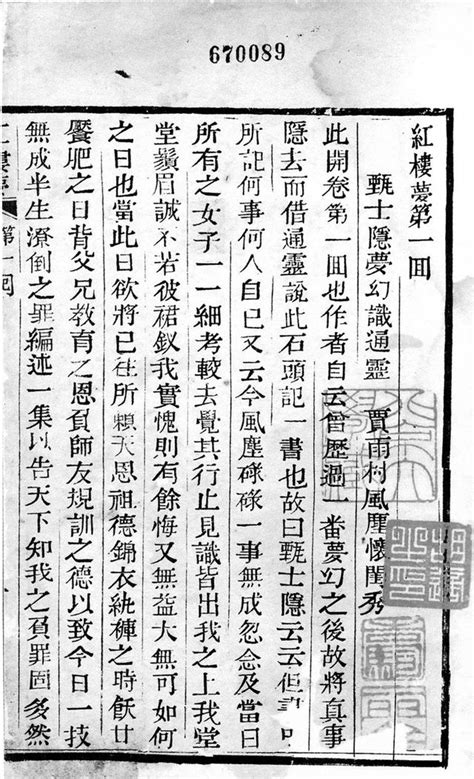 670089
紅樓夢第一回
甄士隱夢幻識通靈 賈雨村風塵懷閨秀
此開卷第一回也作者自云曾歷過一番夢幻之後故將真事
隱去而借通靈說此石頭記一書也故曰甄士隱云云但書中
所記何事何人自己又云今風塵碌碌一事無成忽念及當日
所有之女子一一細考較去覺其行止見識皆出我之上我堂
堂鬚眉誠不若彼裙釵我實愧則有餘悔又無益大無可如何
之日也當此日欲將已往所賴天恩祖德錦衣紈褲之時飫甘
饜肥之日背父兄教育之恩負師友規訓之德以致今日一技
無成半生潦倒之罪編述一集以告天下知我之負罪固多然
第一回